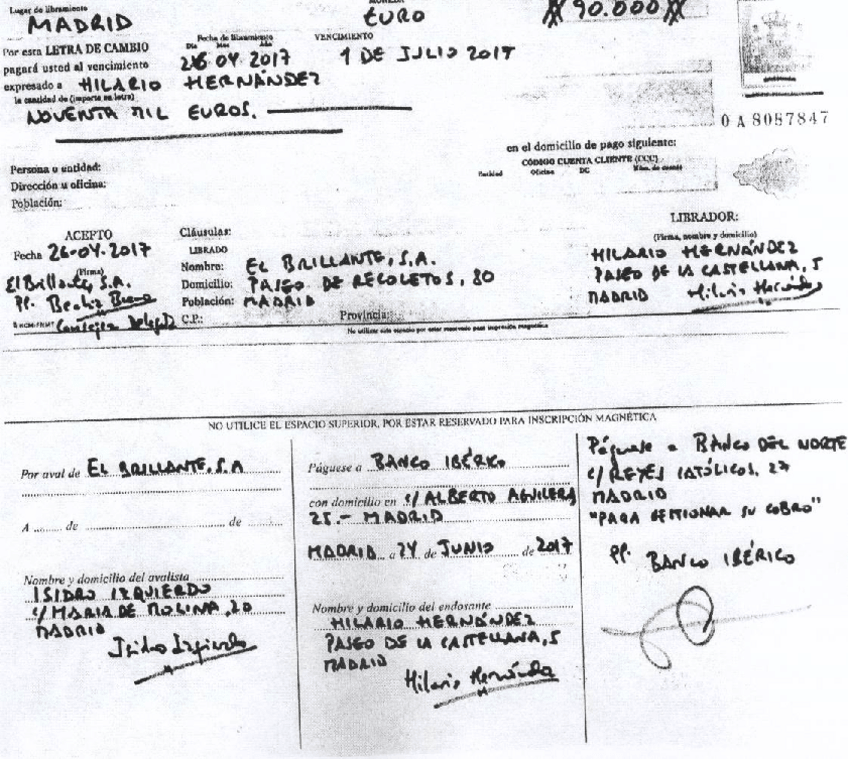 Lugar de libramiento
MADRID
MONEDA
EURO
## 90.000 ##
Por esta LETRA DE CAMBIO
pagará usted al vencimiento
expresado a HILARIO HERNÁNDEZ
Fecha de libramiento
Día Mes Año
26 04 2017
VENCIMIENTO
1 DE JULIO 2017
la cantidad de (importe en letra)
NOVENTA MIL EUROS.
0 A 8087847
en el domicilio de pago siguiente:
CÓDIGO CUENTA CLIENTE (CCC)
Entidad Oficina DC Núm. de cuenta
Persona o entidad:
Dirección u oficina:
Población:
ACEPTO
Fecha 26-04-2017
(Firma)
El Brillante, S.A.
PP. Beatriz Bueno
Consejera Delegada
Cláusulas:
LIBRADO
Nombre: EL BRILLANTE, S.A.
Domicilio: PASEO DE RECOLETOS, 80
Población: MADRID
C.P.: Provincia:
LIBRADOR:
(Firma, nombre y domicilio)
HILARIO HERNÁNDEZ
PASEO DE LA CASTELLANA, 5
MADRID Hilario Hernández
No utilice este espacio por estar reservado para impresión magnética
NO UTILICE EL ESPACIO SUPERIOR, POR ESTAR RESERVADO PARA INSCRIPCIÓN MAGNÉTICA
Por aval de EL BRILLANTE, S.A
A de de
Nombre y domicilio del avalista
ISIDRO IZQUIERDO
C/ MARIA DE MOLINA, 20
MADRID
Isidro Izquierdo
Páguese a BANCO IBÉRICO
con domicilio en C/ ALBERTO AGUILERA
25.- MADRID
MADRID a 24 de JUNIO de 2017
Nombre y domicilio del endosante
HILARIO HERNÁNDEZ
PASEO DE LA CASTELLANA, 5
MADRID
Hilario Hernández
Páguese a BANCO DEL NORTE
C/ REYES CATÓLICOS, 27
MADRID
"PARA GESTIONAR SU COBRO"
PP. BANCO IBÉRICO